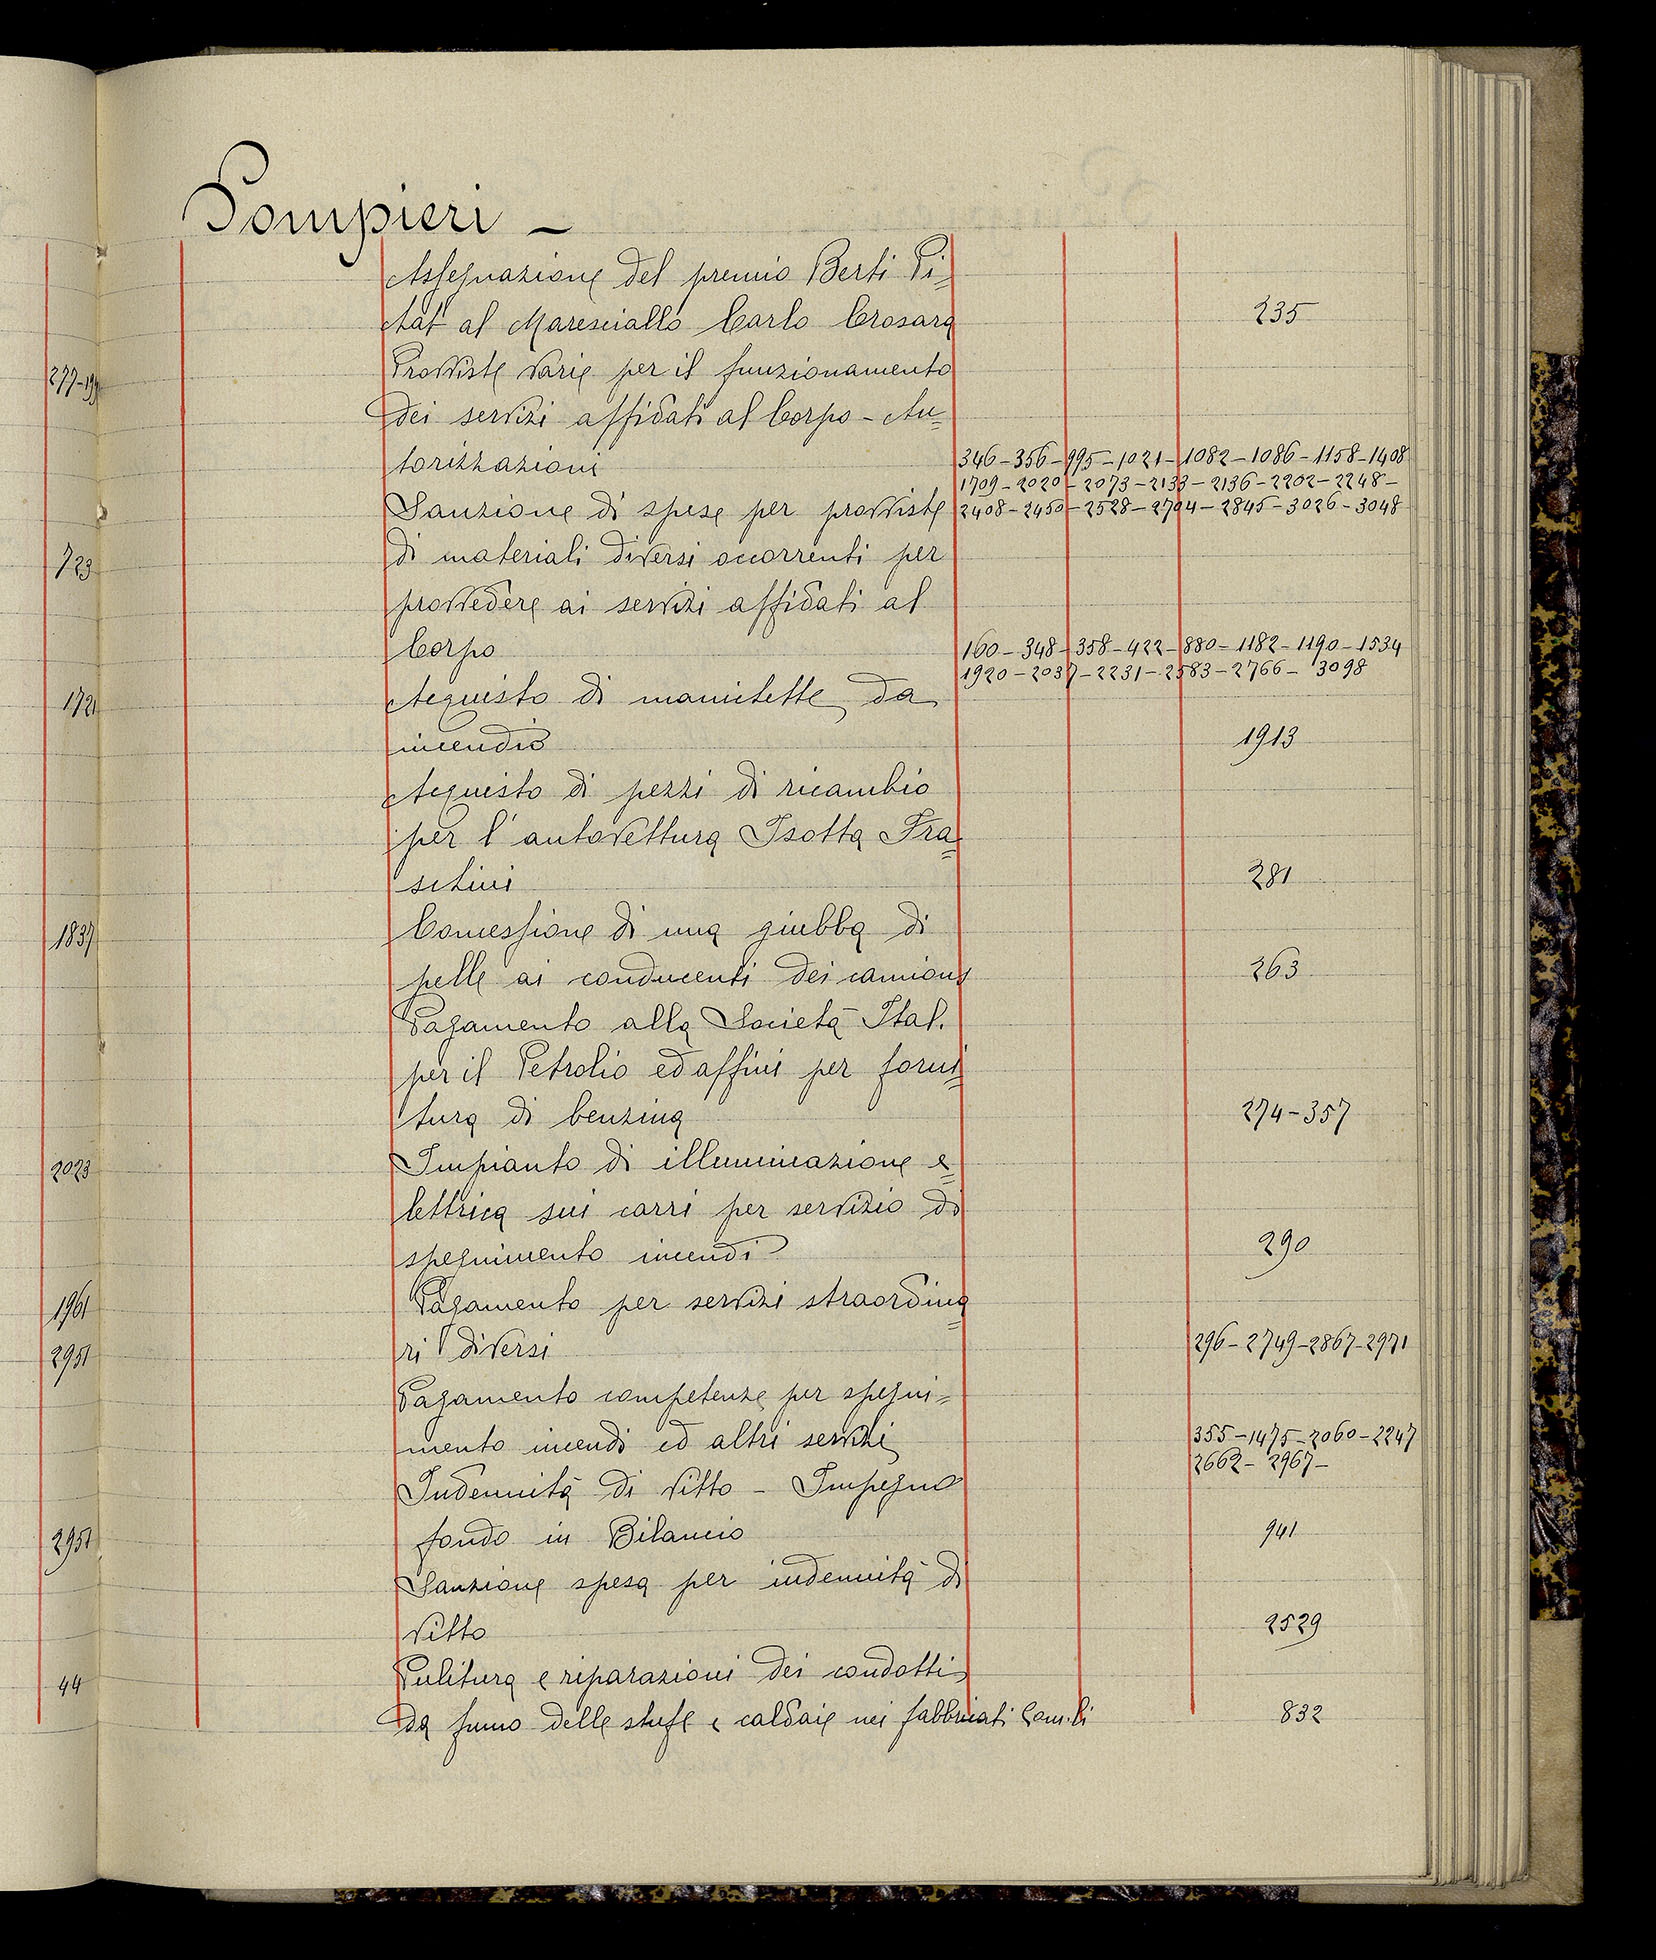 Pompieri –
Assegnazione del premio Berti Pi=
chat al Maresciallo Carlo Crosara
235
Provviste varie per il funzionamento
277-199
dei servizi affidati al Corpo – Au=
torizzazioni
346-356-995-1021-1082-1086-1158-1408
1709-2020-2073-2133-2136-2202-2248-
Sanzione di spese per provviste
2408-2450-2528-2704-2845-3026-3048
di materiali diversi occorrenti per
723
provvedere ai servizi affidati al
Corpo
160-348-358-422-880-1182-1190-1534
1920-2037-2231-2583-2766- 3098
Acquisto di manichette da
1721
incendio
1913
Acquisto di pezzi di ricambio
per l'autovettura Isotta Fra=
schini
281
Concessione di una giubba di
1837
pelle ai conducenti dei camions
263
Pagamento alla Società Ital.
per il Petrolio ed affini per forni=
tura di benzina
274-357
Impianto di illuminazione e=
2023
lettrica sui carri per servizio di
spegnimento incendi
290
Pagamento per servizi straordina=
1961
ri diversi
296-2749-2867-2971
2951
Pagamento competenze per spegni=
mento incendi ed altri servizi
355-1475-2060-2247
2662- 2967-
Indennità di vitto – Impegno
fondo in Bilancio
941
2951
Sanzione spesa per indennità di
vitto
2529
Pulitura e riparazioni dei condotti
44
da fumo delle stufe e caldaie nei fabbricati Com.li
832